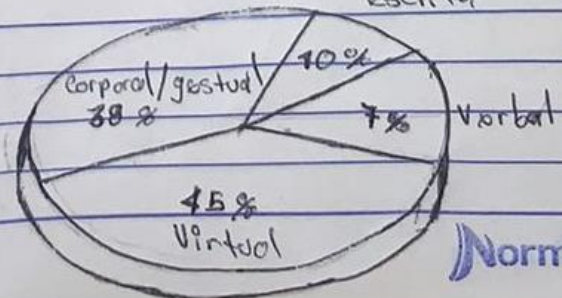 10 %
Corporal/gestual
38 %
7 %
Verbal
45 %
Virtual
Norm